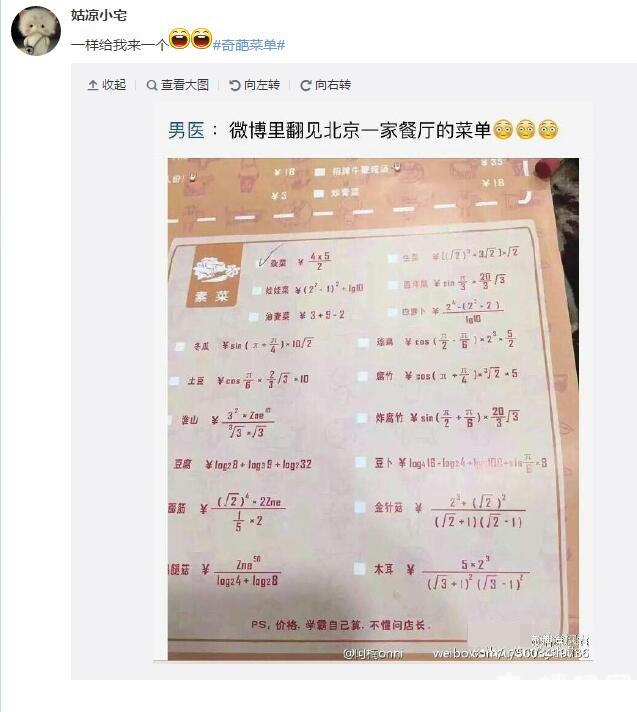 姑凉小宅
一样给我来一个 #奇葩菜单#
收起 查看大图 向左转 向右转
男医： 微博里翻见北京一家餐厅的菜单
￥18 招牌牛鞭炖汤 ￥35
￥3 炒青菜 ￥18
素菜
杂菜 ￥ 4×5/2
生菜 ￥[(√2)³+3√2]×√2
娃娃菜 ￥(2²-1)²+lg10
西洋菜 ￥sin π/3 × 20/3 √3
油麦菜 ￥3+9-2
白萝卜 ￥ 2⁴-(2²-2)/lg10
冬瓜 ￥sin(π+π/4)×10√2
莲藕 ￥cos(π/2-π/6)×2³×5/2
土豆 ￥cos π/6 × 2/3 √3 ×10
腐竹 ￥cos(π+π/4)×³√2×5
淮山 ￥ 3²×2ne¹⁰/³√3×√3
炸腐竹 ￥sin(π/2+π/6)×20/3 √3
豆腐 ￥log₂8+log₃9+log₂32
豆卜 ￥log₄16-log₂4+lg100+sin π/6 ×8
面筋 ￥ (√2)⁴×2Zne/1/5×2
金针菇 ￥ 2³+(√2)²/(√2+1)(√2-1)
腿菇 ￥ Zne⁵⁰/log₂4+log₂8
木耳 ￥ 5×2³/(√3+1)²(√3-1)²
PS，价格，学霸自己算，不懂问店长.